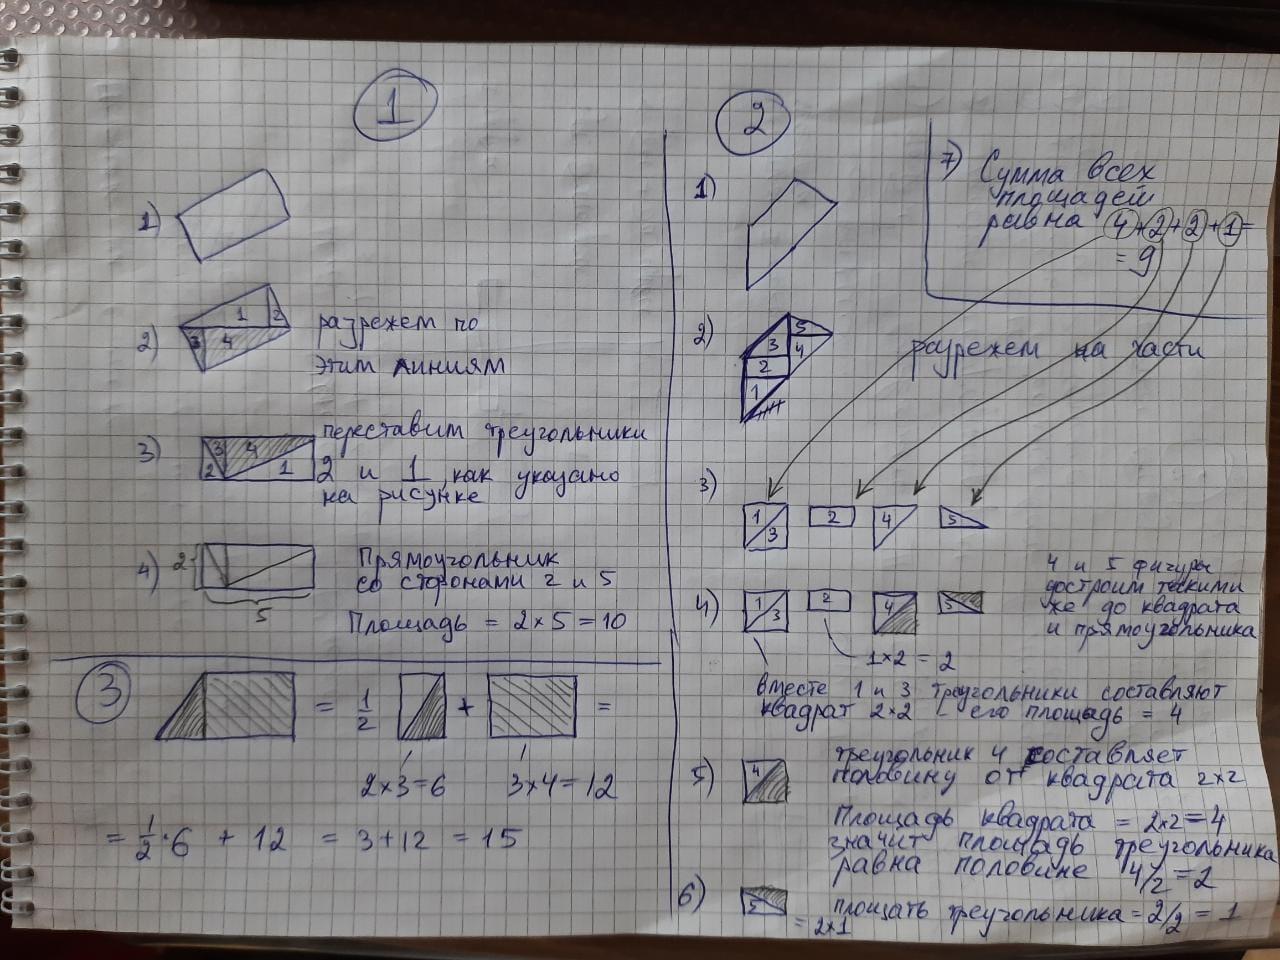 1
1)
2)
1
2
3
4
разрежем по
этим линиям
3)
3
4
2
1
переставим треугольники
2 и 1 как указано
на рисунке
4)
2
5
Прямоугольник
со сторонами 2 и 5
Площадь = 2×5=10
2
1)
2)
5
3
4
2
1
разрежем на части
3)
1
3
2
4
5
4)
1
3
2
4
5
4 и 5 фигуры
достроим такими
же до квадрата
и прямоугольника
1×2=2
вместе 1 и 3 треугольники составляют
квадрат 2×2 - его площадь = 4
5)
4
треугольник 4 составляет
половину от квадрата 2×2
Площадь квадрата = 2×2=4
значит площадь треугольника
равна половине 4/2=2
6)
5
= 2×1
площать треугольника = 2/2 = 1
7) Сумма всех
площадей
равна 4+2+2+1=
= 9
3
= 1/2 + =
2×3=6
3×4=12
= 1/2·6 + 12 = 3+12 = 15